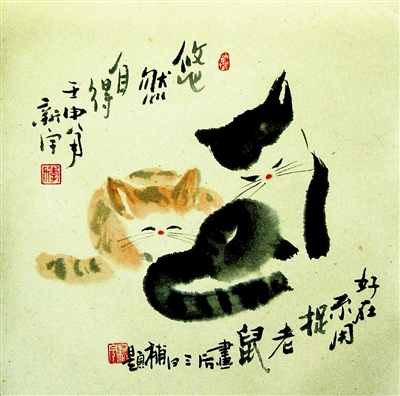 悠然自得
壬申
新宇
好在
不用
捉老鼠
畫后三日補題